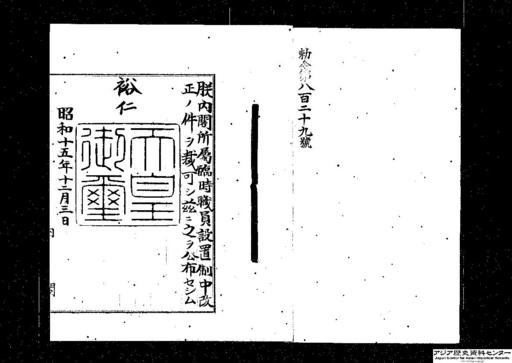 勅令第八百二十九號
朕內閣所屬臨時職員設置制中改
正ノ件ヲ裁可シ茲ニ之ヲ公布セシム
裕仁
天皇
御璽
昭和十五年十二月三日
內閣
アジア歴史資料センター
Japan Center for Asian Historical Records